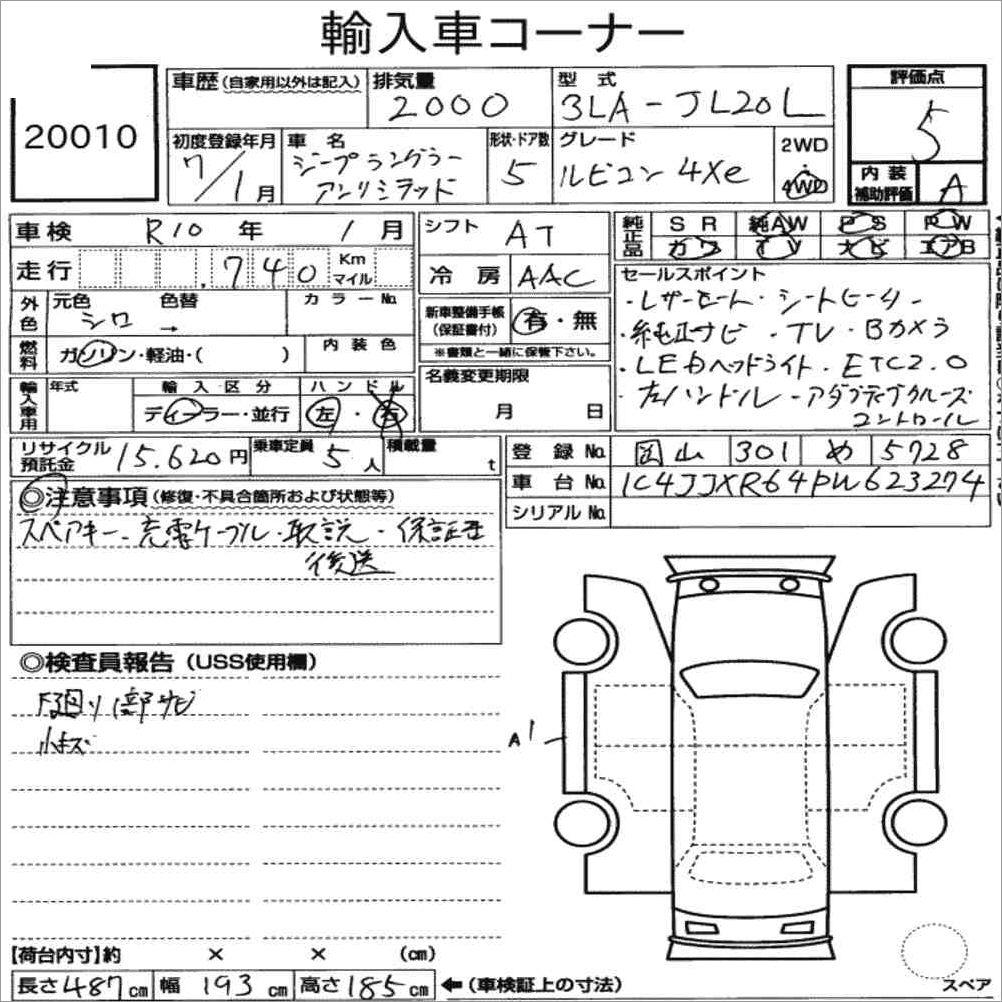 輸入車コーナー
20010
車歴(自家用以外は記入) 排気量 2000 型式 3LA-JL20L 評価点 5
初度登録年月 7/1月 車名 ジープラングラー アンリミテッド 形状・ドア数 5 グレード ルビコン 4Xe 2WD 4WD 内装補助評価 A
車検 R10年 1月 シフト AT 純正品 SR 純AW PS RW
カワ TV ナビ エアB
走行 740 Km マイル 冷房 AAC セールスポイント
外色 元色 シロ 色替 → カラーNo. 新車整備手帳(保証書付) 有・無
・レザーシート・シートヒーター
・純正ナビ・TV・Bカメラ
燃料 ガソリン・軽油・( ) 内装色 ※書類と一緒に保管下さい。
・LEDヘッドライト・ETC2.0
輸入車用 年式 輸入区分 ディーラー・並行 ハンドル 左・右 名義変更期限 月 日
・左ハンドル・アダプティブクルーズ
コントロール
リサイクル預託金 15.620円 乗車定員 5人 積載量 t 登録No. 岡山 301 め 5728
車台No. 1C4JJXR64PW623274
シリアルNo.
◎注意事項(修復・不具合箇所および状態等)
スペアキー・充電ケーブル・取説・保証書
後送
◎検査員報告(USS使用欄)
下廻り部サビ
小キズ
A1
【荷台内寸】約 × × (cm)
長さ487cm 幅193cm 高さ185cm ←(車検証上の寸法)
スペア